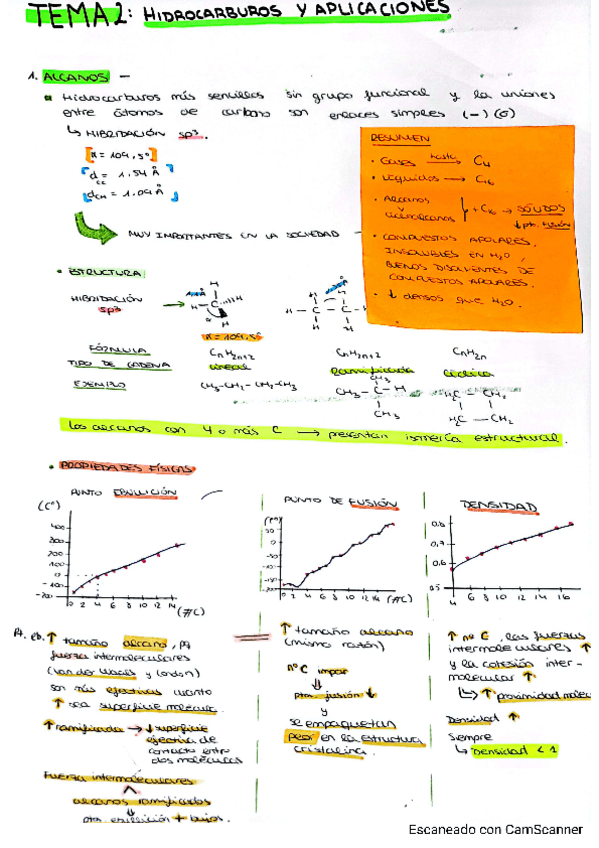 TEMA 2: HIDROCARBUROS Y APLICACIONES
1. ALCANOS –
Hidrocarburos más sencillos sin grupo funcional y la uniones
entre átomos de carbono son enlaces simples (–) (σ)
↳ HIBRIDACIÓN sp3.
α = 109,5º
d cc = 1.54 Å
d CH = 1.09 Å
MUY IMPORTANTES EN LA SOCIEDAD
RESUMEN
· Gases hasta → C4
· Líquidos → C16
· Alcanos y cicloalcanos + C16 → SÓLIDOS
↓ pto. fusión
· COMPUESTOS APOLARES,
INSOLUBLES EN H2O,
BUENOS DISOLVENTES DE
COMPUESTOS APOLARES.
· ↓ densos que H2O.
• ESTRUCTURA
HIBRIDACIÓN
sp3
α = 109,5º
FÓRMULA CnH2n+2 CnH2n+2 CnH2n
TIPO DE CADENA lineal Ramificada cíclica
EJEMPLO CH3-CH2-CH2-CH3
CH3
CH3 - C - H
CH3
H2C - CH2
H2C - CH2
Los alcanos con 4 o más C → presentan isomería estructural.
• PROPIEDADES FÍSICAS
PUNTO EBULLICIÓN
(Cº)
400
300
200
100
0
-100
-200
0 2 4 6 8 10 12 14 (#C)
PUNTO DE FUSIÓN
50
0
-50
-100
-150
0 2 4 6 8 10 12 14 (#C)
DENSIDAD
0.8
0.7
0.6
0.5
4 6 8 10 12 14 16
Pt. eb. ↑ tamaño alcano, pq
fuerza intermoleculares
(Van der Waals y London)
son más efectivas cuanto
↑ sea superficie molecular.
↑ ramificada → ↓ superficie
efectiva de
contacto entre
dos moléculas
Fuerza intermoleculares
alcanos ramificados
pto. ebullición + bajos.
↑ tamaño alcano
(misma razón)
nº C impar
pto. fusión ↓
y
se empaquetan
peor en la estructura
cristalina.
↑ nº C, las fuerzas
intermoleculares ↑
y la cohesión inter-
molecular ↑
↳ ↑ proximidad molec
Densidad ↑
Siempre
↳ Densidad < 1
Escaneado con CamScanner